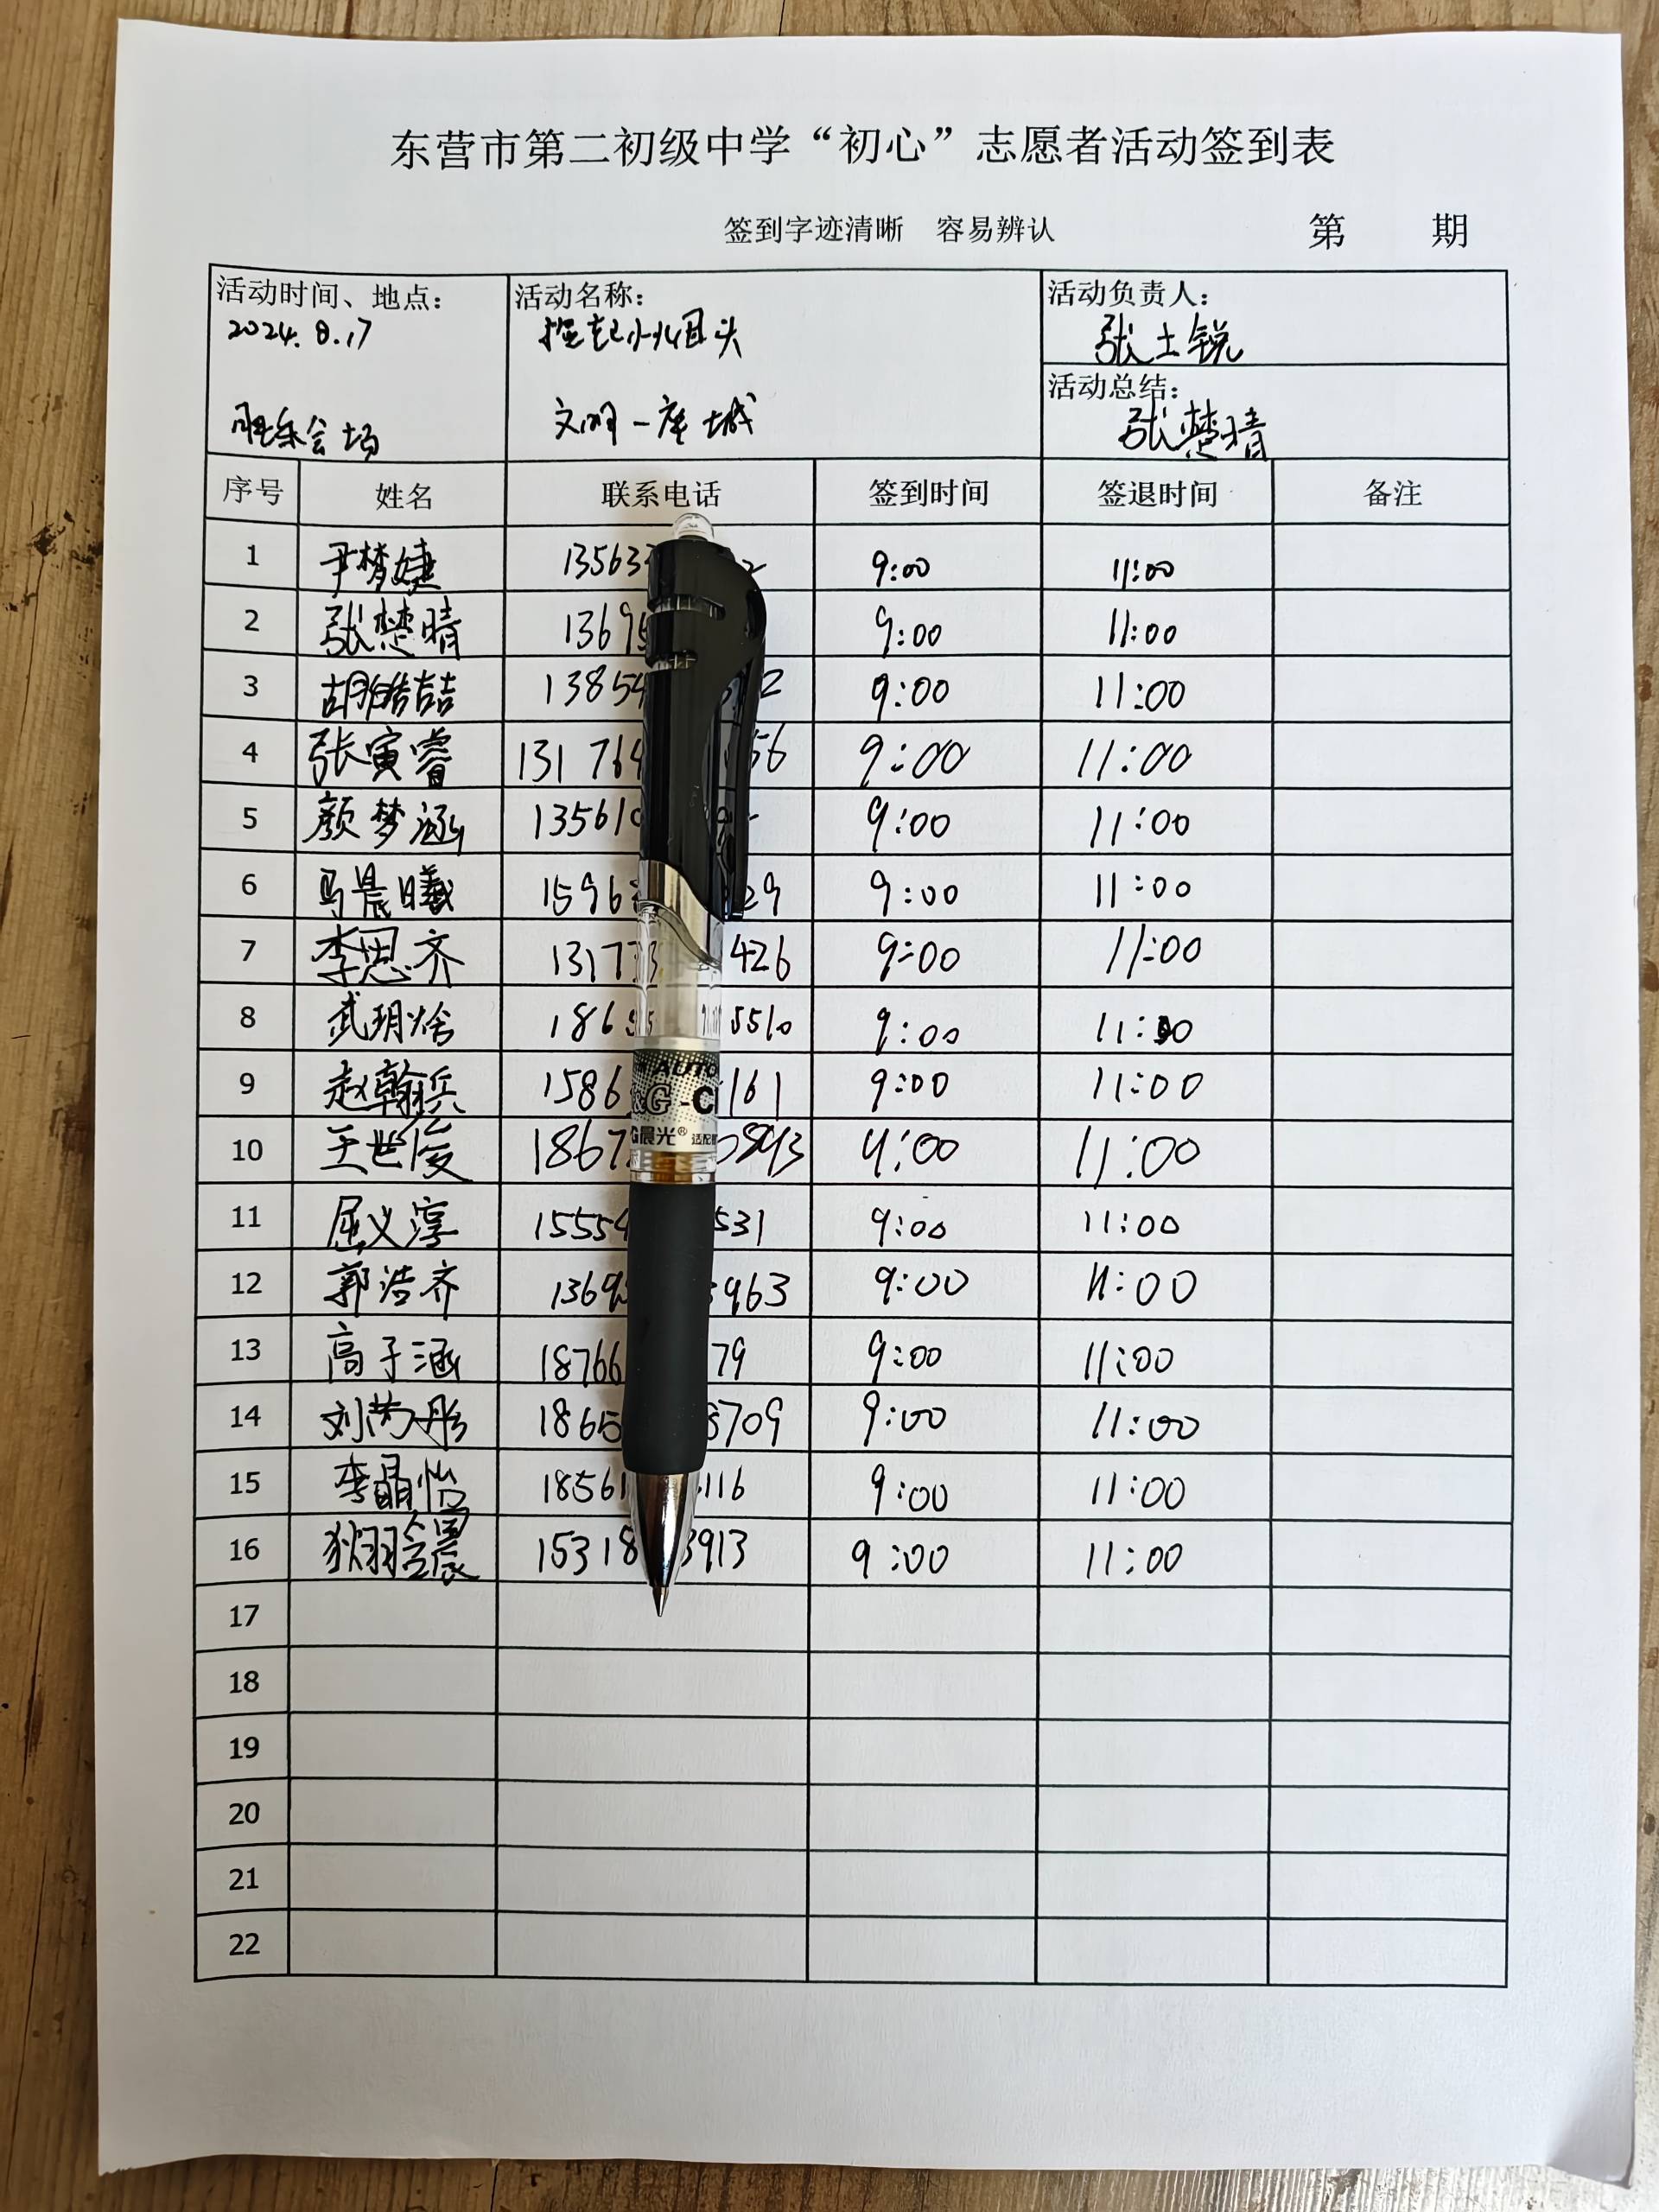 东营市第二初级中学“初心”志愿者活动签到表
签到字迹清晰 容易辨认 第 期
活动时间、地点： 活动名称： 活动负责人：
2024.8.17 张士锐
活动总结：
会场 文明一座城 张楚晴
序号 姓名 联系电话 签到时间 签退时间 备注
1 尹梦婕 13563 9:00 11:00
2 张楚晴 1369 9:00 11:00
3 胡皓喆 13854 2 9:00 11:00
4 张寅睿 131764 56 9:00 11:00
5 颜梦涵 13561 9:00 11:00
6 马晨曦 1596 29 9:00 11:00
7 李思齐 1317 426 9:00 11:00
8 武玥 186 5510 9:00 11:00
9 赵翰兵 1586 161 9:00 11:00
10 王世俊 1867 9:00 11:00
11 屈义淳 15554 531 9:00 11:00
12 郭浩齐 1369 963 9:00 11:00
13 高子涵 18766 79 9:00 11:00
14 刘芮彤 1865 709 9:00 11:00
15 李晶怡 18561 116 9:00 11:00
16 狄羽 15318 3913 9:00 11:00
17
18
19
20
21
22
AUTO
&G-C
G晨光®